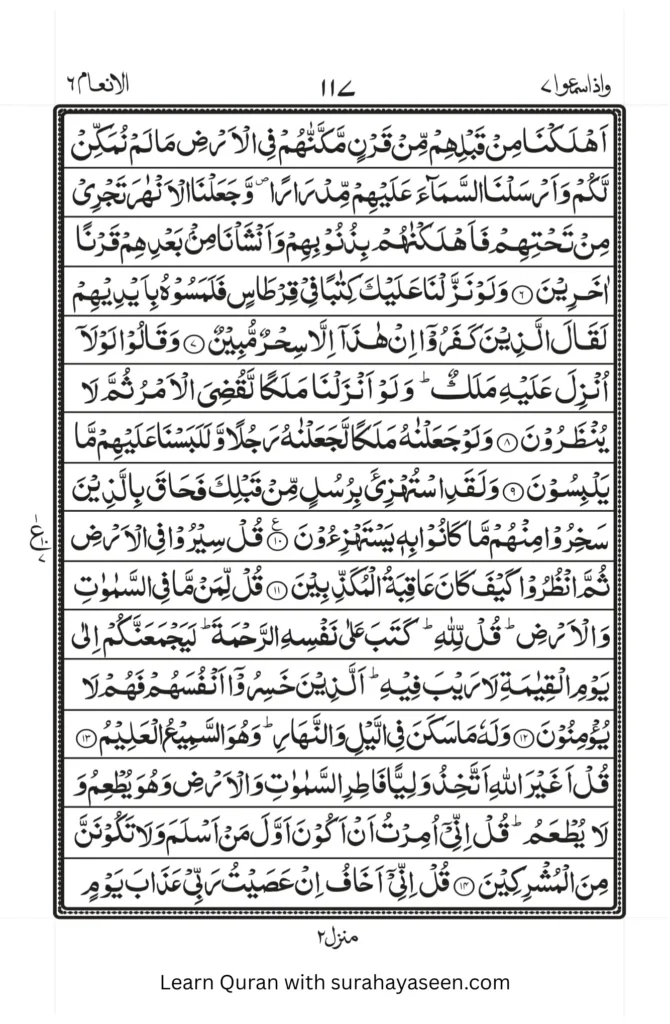 واذاسمعوا ٧ ١١٧ الانعام ٦
اَهۡلَكۡنَا مِنۡ قَبۡلِهِمۡ مِّنۡ قَرۡنٍ مَّكَّنّٰهُمۡ فِى الۡاَرۡضِ مَا لَمۡ نُمَكِّنۡ
لَّكُمۡ وَاَرۡسَلۡنَا السَّمَآءَ عَلَيۡهِمۡ مِّدۡرَارًا ۖ وَّجَعَلۡنَا الۡاَنۡهٰرَ تَجۡرِىۡ
مِنۡ تَحۡتِهِمۡ فَاَهۡلَكۡنٰهُمۡ بِذُنُوۡبِهِمۡ وَاَنۡشَاۡنَا مِنۡۢ بَعۡدِهِمۡ قَرۡنًا
اٰخَرِيۡنَ ۝۶ وَلَوۡ نَزَّلۡنَا عَلَيۡكَ كِتٰبًا فِىۡ قِرۡطَاسٍ فَلَمَسُوۡهُ بِاَيۡدِيۡهِمۡ
لَقَالَ الَّذِيۡنَ كَفَرُوۡۤا اِنۡ هٰذَاۤ اِلَّا سِحۡرٌ مُّبِيۡنٌ ۝۷ وَقَالُوۡا لَوۡلَاۤ
اُنۡزِلَ عَلَيۡهِ مَلَكٌ ؕ وَلَوۡ اَنۡزَلۡنَا مَلَكًا لَّقُضِىَ الۡاَمۡرُ ثُمَّ لَا
يُنۡظَرُوۡنَ ۝۸ وَلَوۡ جَعَلۡنٰهُ مَلَكًا لَّجَعَلۡنٰهُ رَجُلًا وَّلَلَبَسۡنَا عَلَيۡهِمۡ مَّا
يَلۡبِسُوۡنَ ۝۹ وَلَقَدِ اسۡتُهۡزِئَ بِرُسُلٍ مِّنۡ قَبۡلِكَ فَحَاقَ بِالَّذِيۡنَ
سَخِرُوۡا مِنۡهُمۡ مَّا كَانُوۡا بِهٖ يَسۡتَهۡزِءُوۡنَ ۝۱۰ قُلۡ سِيۡرُوۡا فِى الۡاَرۡضِ
ثُمَّ انْظُرُوۡا كَيۡفَ كَانَ عَاقِبَةُ الۡمُكَذِّبِيۡنَ ۝۱۱ قُلۡ لِّمَنۡ مَّا فِى السَّمٰوٰتِ
وَالۡاَرۡضِ ؕ قُلۡ لِّلّٰهِ ؕ كَتَبَ عَلٰى نَفۡسِهِ الرَّحۡمَةَ ؕ لَيَجۡمَعَنَّكُمۡ اِلٰى
يَوۡمِ الۡقِيٰمَةِ لَا رَيۡبَ فِيۡهِ ؕ اَلَّذِيۡنَ خَسِرُوۡۤا اَنۡفُسَهُمۡ فَهُمۡ لَا
يُؤۡمِنُوۡنَ ۝۱۲ وَلَهٗ مَا سَكَنَ فِى الَّيۡلِ وَالنَّهَارِ ؕ وَهُوَ السَّمِيۡعُ الۡعَلِيۡمُ ۝۱۳
قُلۡ اَغَيۡرَ اللّٰهِ اَتَّخِذُ وَلِيًّا فَاطِرِ السَّمٰوٰتِ وَالۡاَرۡضِ وَهُوَ يُطۡعِمُ وَ
لَا يُطۡعَمُ ؕ قُلۡ اِنِّىۡۤ اُمِرۡتُ اَنۡ اَكُوۡنَ اَوَّلَ مَنۡ اَسۡلَمَ وَلَا تَكُوۡنَنَّ
مِنَ الۡمُشۡرِكِيۡنَ ۝۱۴ قُلۡ اِنِّىۡۤ اَخَافُ اِنۡ عَصَيۡتُ رَبِّىۡ عَذَابَ يَوۡمٍ
منزل ٢
Learn Quran with surahayaseen.com